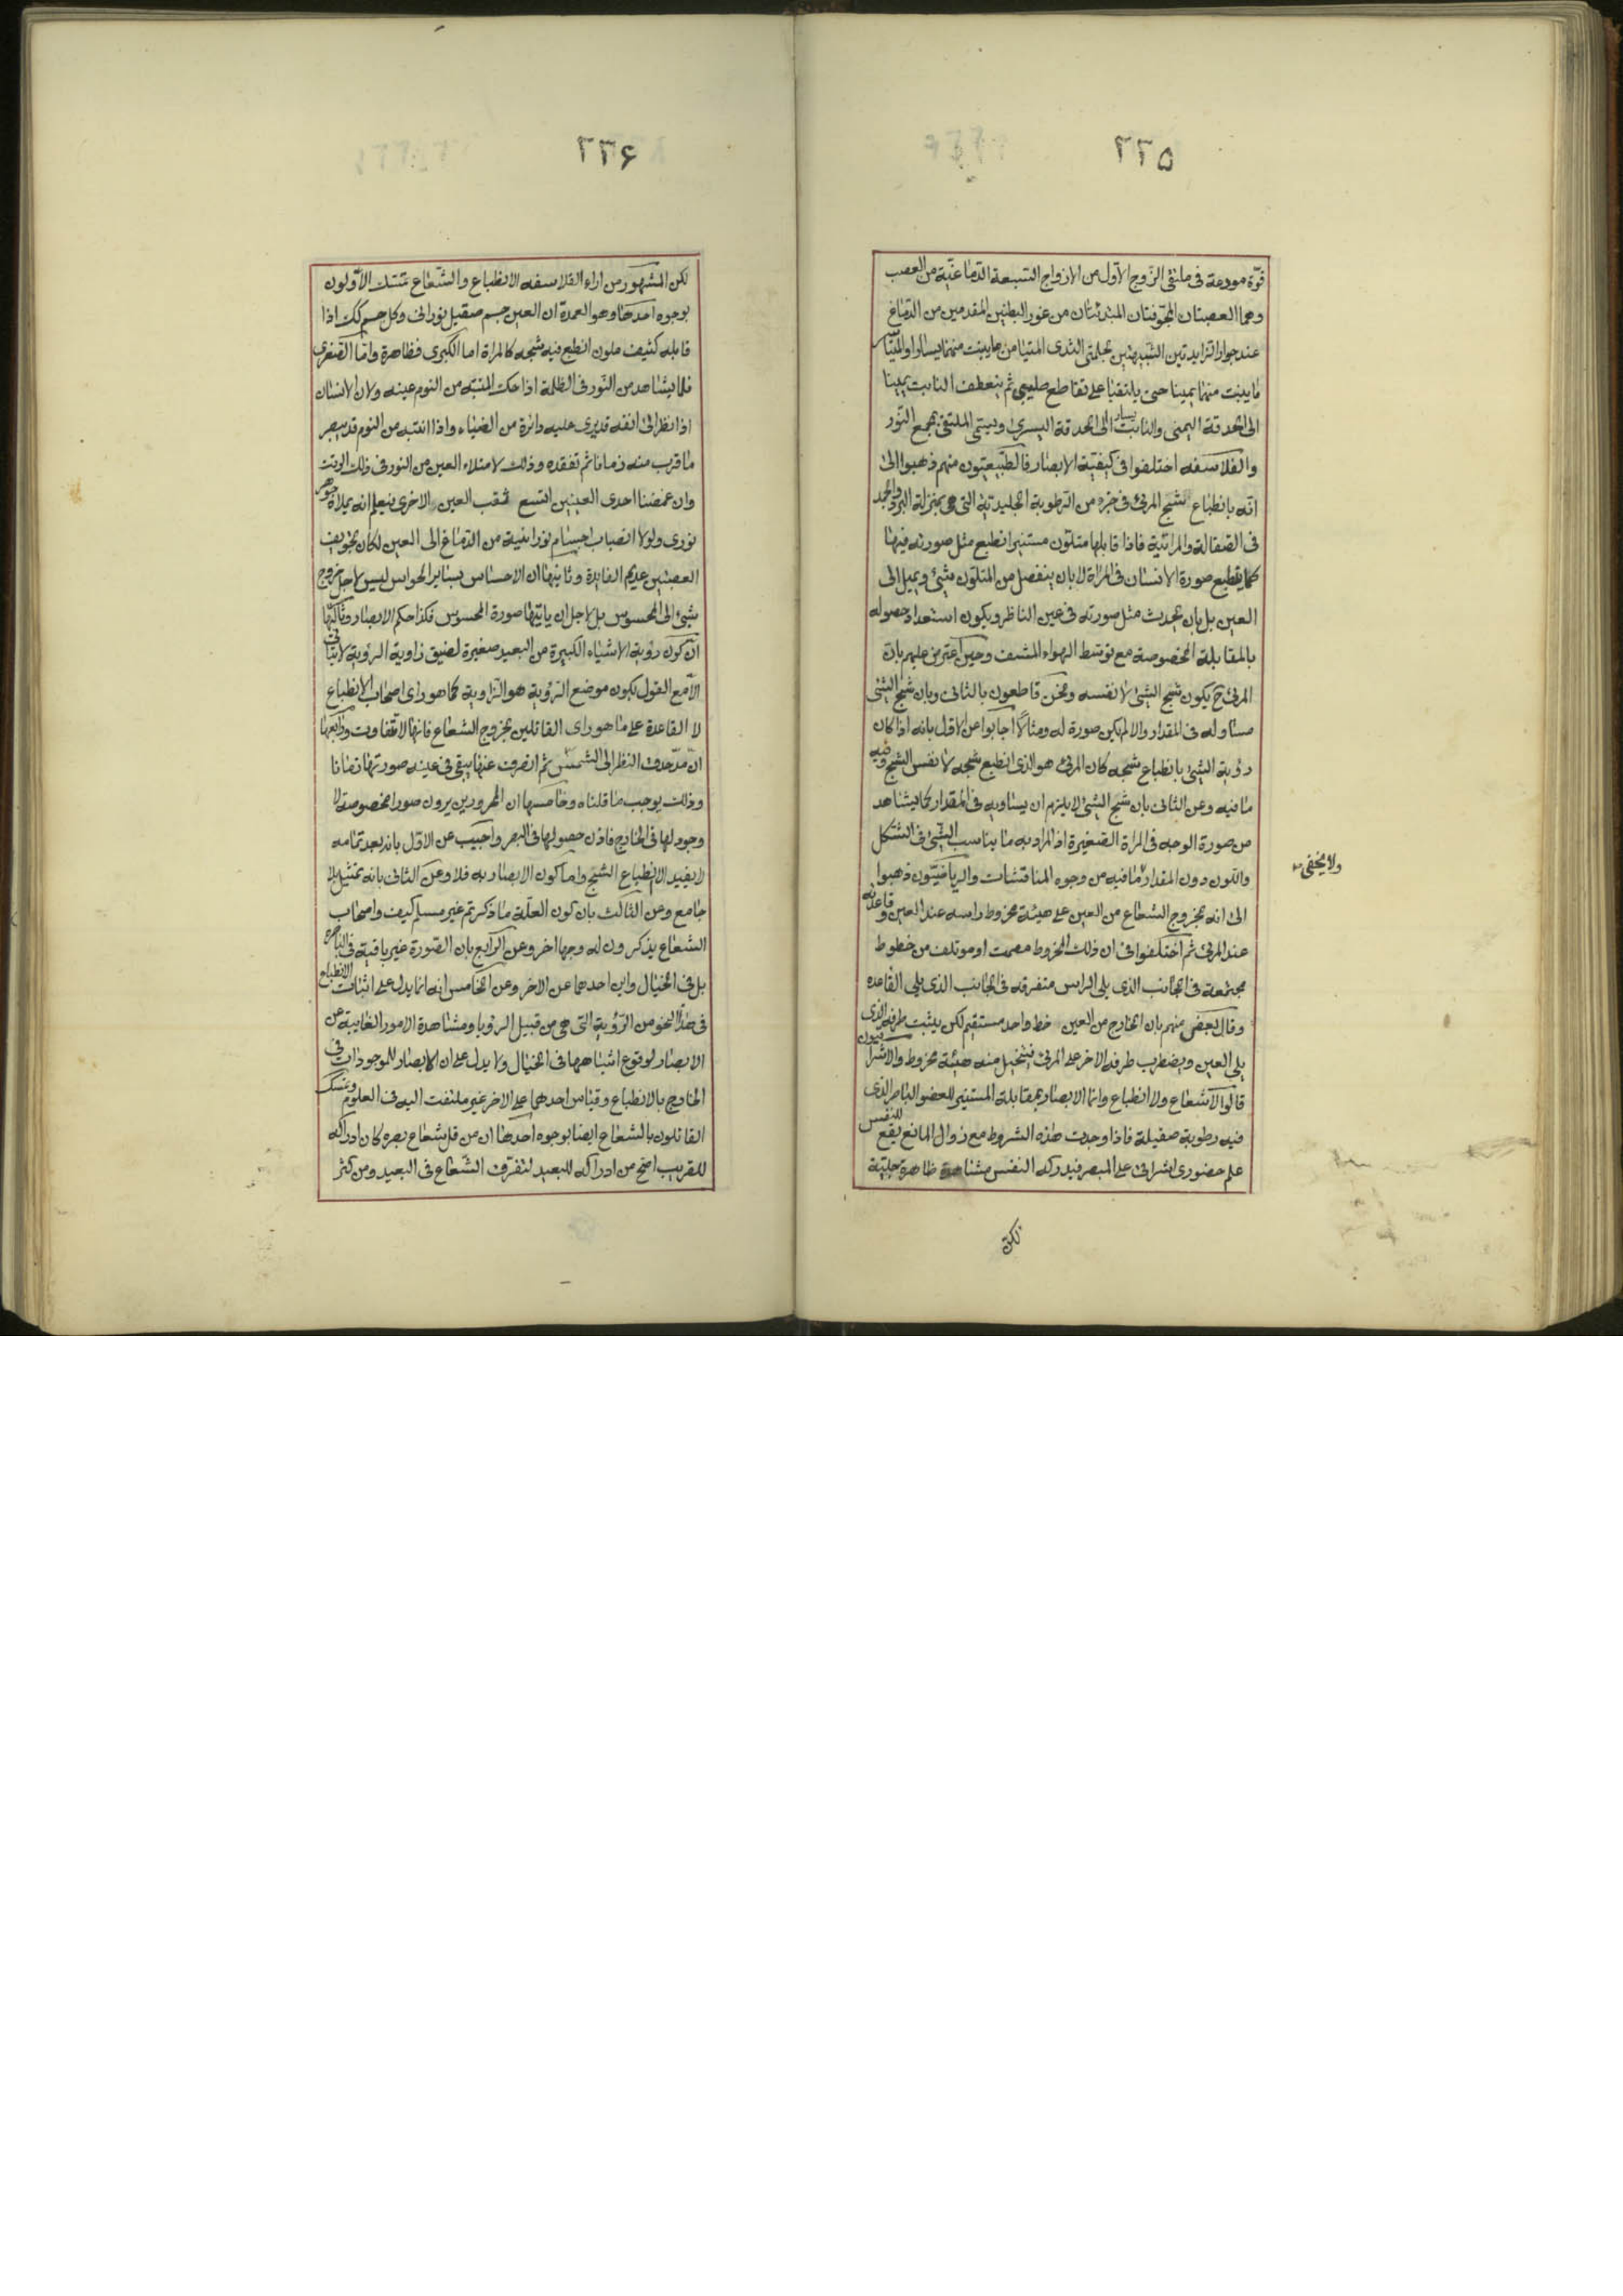 ٢٣٥
قوّة مودعة فى ملتقى الزّوج الاوّل من الازواج السّبعة الدّماغيّة من العصب
وهما العصبتان المجوّفتان المبتدئتان من غور البطنين المقدمين من الدّماغ
عند جوار الزايدتين الشبيهتين بحلمتى الثدى المتيامن ما ينبت منهما يسارا والمتياسر
ما ينبت منهما يمينا حتى يلتقيا على تقاطع صليبى ثم ينعطف النابت يمينا
الى الحدقة اليمنى والنابت يسارا الى الحدقة اليسرى ويسمّى الملتقى بمجمع النّور
والفلاسفه اختلفوا فى كيفيّة الابصار فالطّبيعيّون منهم ذهبوا الى
انّه بانطباع شبح المرئى فى جزء من الرّطوبة الجليديّة التى هى بمنزلة البرد والجمد
فى الصّقالة والمراتيّة فاذا قابلها متلوّن مستنير انطبع مثل صورته فيها
كما ينطبع صورة الانسان فى المراة لا بان ينفصل من المتلوّن شئ ويميل الى
العين بل بان يحدث مثل صورته فى عين الناظر ويكون استعداد حصوله
بالمقابلة المخصوصة مع توسّط الهواء المشف وحين اعترض عليهم بان
المرئى ح يكون شبح الشئ لا نفسه ونحن قاطعون بالثانى وبان شبح الشئ
مساو له فى المقدار والا لم يكن صورة له ومثالا اجابوا عن الاول بانه اذا كان
رؤية الشئ بانطباع شبحه كان المرئى هو الذى انطبع شبحه لا نفس الشبح وفيه
ما فيه وعن الثانى بان شبح الشئ لا يلزم ان يساويه فى المقدار كما يشاهد
من صورة الوجه فى المراة الصّغيرة اذ المراد به ما يناسب الشئ فى الشكل
واللّون دون المقدار ما فيه من وجوه المناقشات والرياضيّون ذهبوا
ولا يخفى
الى انه بخروج الشعاع من العين على هيئة مخروط راسه عند العين وقاعدته
عند المرئى ثم اختلفوا فى ان ذلك المخروط مصمت او موتلف من خطوط
مجتمعة فى الجانب الذى يلى الراس متفرقه فى الجانب الذى يلى القاعده
وقال بعض منهم بان الخارج من العين خط واحد مستقيم لكن يثبت طرفه الذى
يلى العين ويضطرب طرفه الاخر على المرئى فيتخيل منه هيئة مخروط والاشراقيون
قالوا لا شعاع ولا انطباع وانما الابصار بمقابلة المستنير للعضو الباصر الذى
فيه رطوبة صقيلة فاذا وجدت هذه الشروط مع زوال المانع يقع للنفس
علم حضورى اشراقى على المبصر فيدركه النفس مشاهدة ظاهرة جليّة
لكن
٢٣۶
لكن المشهور من اراء الفلاسفه الانطباع والشّعاع تمسّك الاوّلون
بوجوه احدها وهو العمدة ان العين جسم صقيل نورانى وكل جسم كك اذا
قابله كثيف ملون انطبع فيه شبحه كالمراة اما الكبرى فظاهرة وامّا الصّغرى
فلما يشاهد من النّور فى الظلمة اذا حكّ المنتبه من النوم عينه ولان الانسان
اذا نظر الى انفه قد يرى عليه دائرة من الضّياء واذا انتبه من النوم قد يبصر
ما قرب منه زمانا ثم تفقده وذلك لامتلاء العين من النور فى ذلك الوقت
وان غمضنا احدى العينين اتّسع ثقب العين الاخرى فيعلم انه يملاه جوهر
نورى ولولا انصباب اجسام نورانية من الدّماغ الى العين لكان تجويف
العصبتين عديم الفايدة وثانيها ان الاحساس بساير الحواس ليس لاجل خروج
شئ الى المحسوس بل لاجل ان ياتيها صورة المحسوس فكذا حكم الابصار وثالثها
ان كون رؤية الاشياء الكبيرة من البعيد صغيرة لضيق زاوية الرؤية لا يتأتى
الّا مع القول بكون موضع الرّؤية هو الزاوية كما هو راى اصحاب الانطباع
لا القاعدة على ما هو راى القائلين بخروج الشعاع فانها لا تتفاوت ورابعها
ان من حدق النظر الى الشمس ثم انصرف عنها يبقى فى عينه صورتها زمانا
وذلك يوجب ما قلناه وخامسها ان الممرورين يرون صورا مخصوصة لا
وجود لها فى الخارج فاذن حصولها فى البصر واجيب عن الاول بانه بعد تمامه
لا يفيد الا انطباع الشبح واما كون الابصار به فلا وعن الثانى بانه تمثيل بلا
جامع وعن الثالث بان كون العلّة ما ذكرتم غير مسلم كيف واصحاب
الشعاع يذكرون له وجها اخر وعن الرابع بان الصّورة غير باقية فى الباصرة
بل فى الخيال واين احدهما عن الاخر وعن الخامس انه انما يدل على اثبات الانطباع
فى هذا النحو من الرّؤية التى هى من قبيل الرؤيا ومشاهدة الامور الغايبة عن
الابصار لوقوع اشباهها فى الخيال ولا يدل على ان الابصار للموجودات فى
الخارج بالانطباع وقياس احدهما على الاخر غير ملتفت اليه فى العلوم وتمسك
القائلون بالشعاع ايضا بوجوه احدها ان من قل شعاع بصره كان ادراكه
للقريب اصح من ادراكه للبعيد لتفرّق الشّعاع فى البعيد ومن كثر